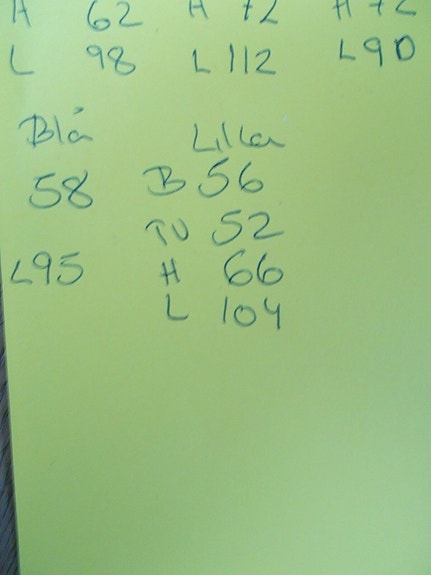 H 62 H 72 H 72
L 98 L 112 L 90
Blå Lilla
58 B 56
TU 52
L 95 H 66
L 104